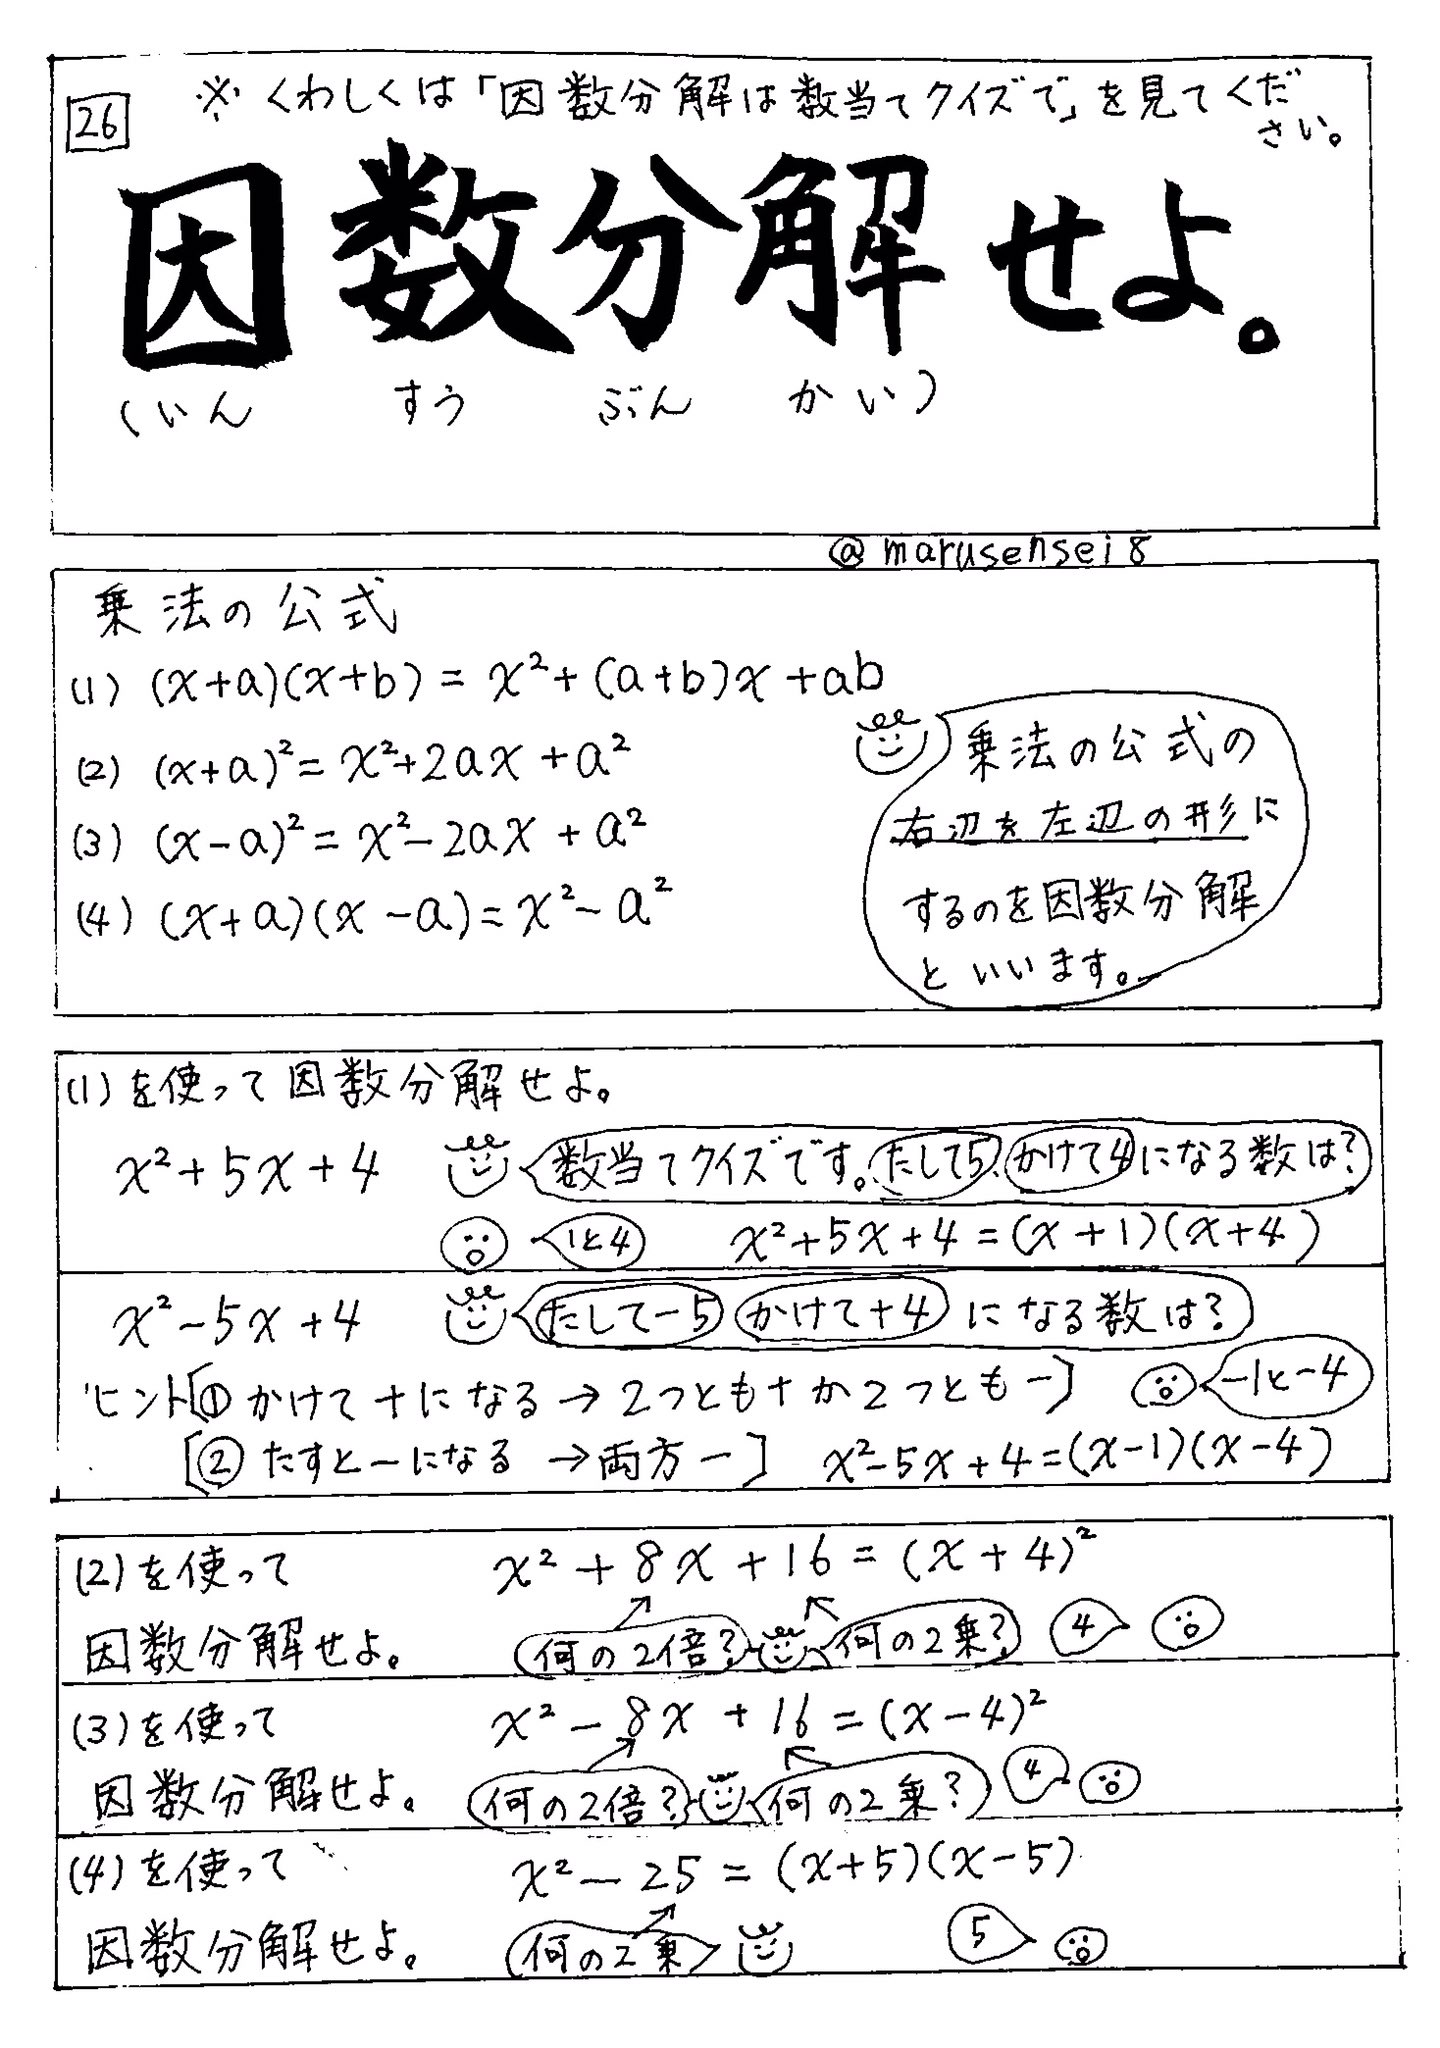 ※くわしくは「因数分解は数当てクイズで」を見てくだ
さい。
26
因数分解せよ。
(いん すう ぶん かい)
@marusensei8
乗法の公式
(1) (x+a)(x+b) = x²+(a+b)x+ab
(2) (x+a)²=x²+2ax+a²
(3) (x-a)²=x²-2ax+a²
(4) (x+a)(x-a)=x²-a²
乗法の公式の
右辺を左辺の形に
するのを因数分解
といいます。
(1)を使って因数分解せよ。
x²+5x+4
数当てクイズです。たして5、かけて4になる数は?
1と4
x²+5x+4=(x+1)(x+4)
x²-5x+4
たして-5 かけて+4 になる数は?
ヒント[① かけて+になる→2つとも+か2つとも-]
-1と-4
[② たすと-になる →両方-]
x²-5x+4=(x-1)(x-4)
(2)を使って
因数分解せよ。
x²+8x+16=(x+4)²
何の2倍? 何の2乗? 4
(3)を使って
因数分解せよ。
x²-8x+16=(x-4)²
何の2倍? 何の2乗? 4
(4)を使って
因数分解せよ。
x²-25=(x+5)(x-5)
何の2乗 5